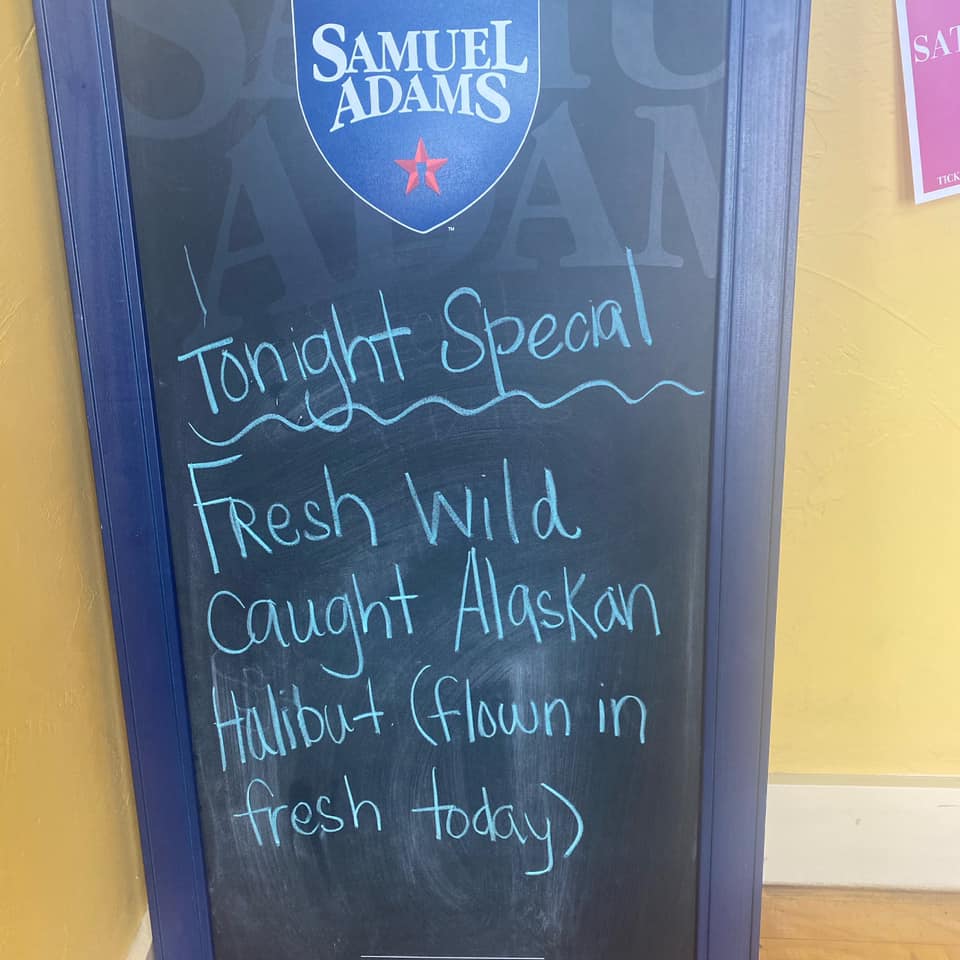 SAMUEL
ADAMS
™
SAMU
ADAM
SAT
TICK
Tonight Special
Fresh Wild
Caught Alaskan
Halibut (flown in
fresh today)